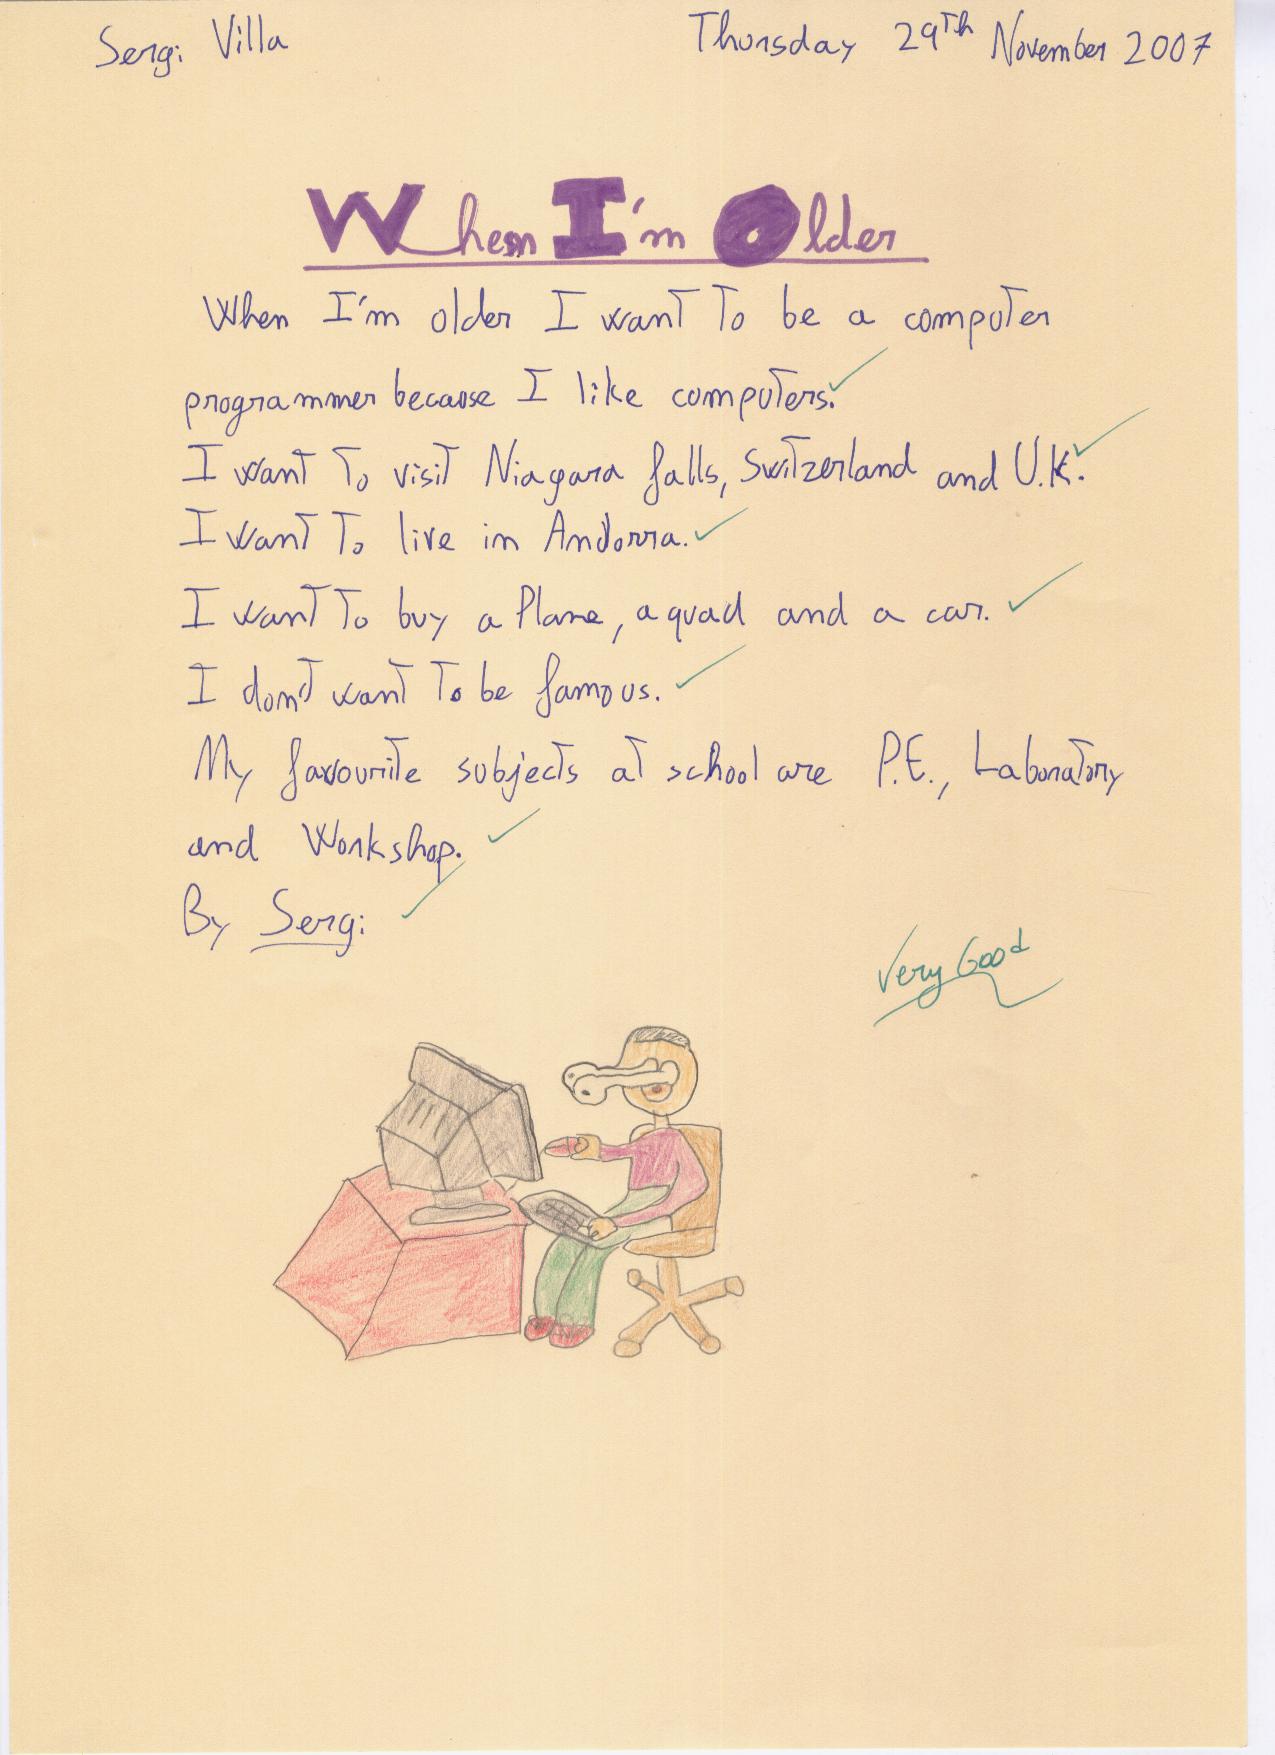 Sergi Villa
Thursday 29Th November 2007
When I'm Older
When I'm older I want To be a computer
programmer because I like computers.
I want To visit Niagara falls, Switzerland and U.K.
I want To live in Andorra.
I want To buy a Plane, a quad and a car.
I don't want To be famous.
My favourite subjects at school are P.E., Laboratory
and Workshop.
By Sergi
Very Good